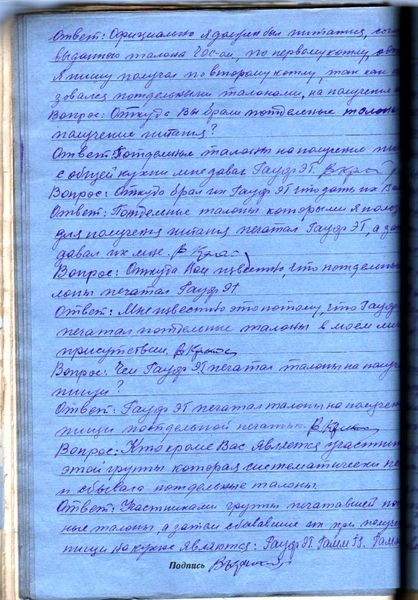 Ответ: Официально я должен был питаться, со
выданного талона ЧОС-ом, по первому котлу, а
Я пищу получал по второму котлу, так как
зовался поддельными талонами, на получение
Вопрос: Откуда Вы брали поддельные талоны
получение питания?
Ответ: Поддельные талоны на получение пи
с общей кухни мне давал Гауф ЭГ.
Вопрос: Откуда брал их Гауф ЭГ что дать их Ва
Ответ: Поддельные талоны которыми я пользо
для получения питания печатал Гауф ЭГ, а за
давал их мне.
Вопрос: Откуда Вам известно, что поддельные
лоны печатал Гауф ЭГ
Ответ: Мне известно это потому, что Гауф
печатал поддельные талоны в моем ли
присутствии.
Вопрос: Чем Гауф ЭГ печатал талоны на получ
пищи?
Ответ: Гауф ЭГ печатал талоны на получен
пищи поддельной печатью.
Вопрос: Кто кроме Вас является участник
этой группы которая систематически пе
и сбывала поддельные талоны.
Ответ: Участниками группы печатавшей под
ные талоны, а затем сбывавшие их при получе
пищи на кухне являются: Гауф ЭГ, Гамм
Подпись